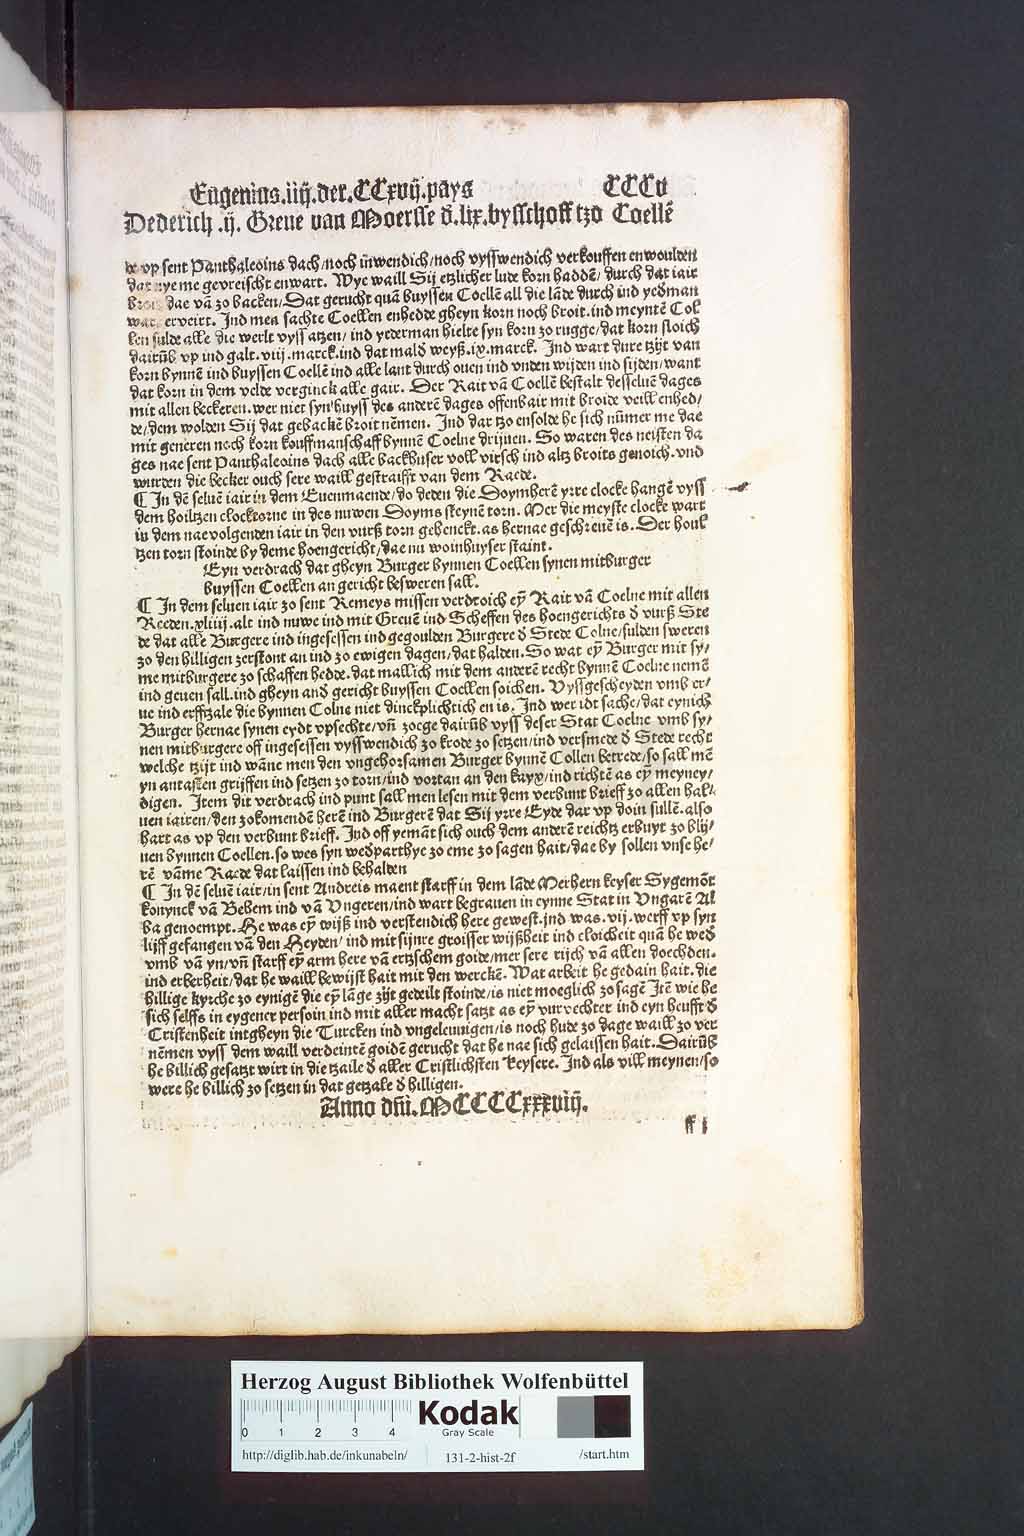 Eugenius.iiij.der.CCxvij.pays CCCv
Dederich .ij. Greue van Moersse d̄.lix.bysschoff tzo Coellē
de vp sent Panthaleoins dach/noch inwendich/noch vysswendich verkouffen enwoulden
dat nye me gevreischt enwart. Wye waill Sij etzlicher lude korn haddē/ durch dat iair
dae vā zo backen/Dat gerucht quā buyssen Coellē all die lāde durch ind yederman
erveirt. Ind men sachte Coellen enhedde gheyn korn noch broit.ind meyntē Col
len sulde alle die werlt vyss atzen/ ind yederman hielte syn korn zo rugge/dat korn sloich
dairūb vp ind galt.viij.marck.ind dat mald̄ weyß.ix.marck. Ind wart dure tzijt van
korn bynnē ind buyssen Coellē ind alle lant durch ouen ind vnden wijden ind sijden/want
dat korn in dem velde verginck alle gair. Der Rait vā Coellē bestalt desseluē dages
mit allen beckeren.wer niet syn huyss des anderē dages offenbair mit broide veill enhed/
de/dem wolden Sij dat gebackē broit nēmen. Ind dar tzo ensolde he sich nūmer me dae
mit generen noch korn kouffmanschaff bynnē Coelne drijuen. So waren des neisten da
ges nae sent Panthaleoins dach alle backhuser voll virsch ind altz broits genoich.vnd
wurden die becker ouch sere waill gestraifft van dem Raede.
¶ In dē seluē iair in dem Euenmaende/do deden die Doymherē yrre clocke hangē vyss
dem hoiltzen clocktorne in des nuwen Doyms steynē torn. Mer die meyste clocke wart
in dem naevolgenden iair in den vurß torn gehenckt.as hernae geschreuē is. Der houl
tzen torn stoinde by deme hoengericht/dae nu woinhuyser staint.
Eyn verdrach dat gheyn Burger bynnen Coellen synen mitburger
buyssen Coellen an gericht besweren sall.
¶ In dem seluen iair zo sent Remeys missen verdroich eȳ Rait vā Coelne mit allen
Reeden.xliiij.alt ind nuwe ind mit Greuē ind Scheffen des hoengerichts d̄ vurß Ste
de dat alle Burgere ind ingesessen ind gegoulden Burgere d̄ Stede Colne/sulden sweren
zo den hilligen zerstont an ind zo ewigen dagen/dat halden.So wat eȳ Burger mit sy/
me mitburgere zo schaffen hedde.dat mallich mit dem anderē recht bynnē Coelne nemē
ind geuen sall.ind gheyn and̄ gericht buyssen Coellen soichen. Vyssgescheyden vmb er/
ue ind erfftzale die bynnen Colne niet dinckplichtich en is. Ind wer idt sache/dat eynich
Burger hernae synen eydt vpsechte/vn̄ zocge dairūb vyss deser Stat Coelne vmb sy/
nen mitburgere off ingesessen vysswendich zo krode zo setzen/ind versmede d̄ Stede recht
welche tzijt ind wāne men den vngehorsamen Burger bynnē Collen betrede/so sall mē
yn antasten grijffen ind setzen zo torn/ind vortan an den kayx/ind richtē as eȳ meyney/
digen. Item dit verdrach ind punt sall men lesen mit dem verbunt brieff zo allen hal/
uen iairen/den zokomendē herē ind Burgerē dat Sij yrre Eyde dar vp doin sullē.also
hart as vp den verbunt brieff. Ind off yemāt sich ouch dem anderē reichtz erbuyt zo blij/
uen bynnen Coellen.so wes syn wed̄parthye zo eme zo sagen hait/dae by sollen vnse he/
rē vāme Raede dat laissen ind behalden
¶ In dē seluē iair/in sent Andreis maent starff in dem lāde Merhern keyser Sygemōt
konynck vā Behem ind vā Vngeren/ind wart begrauen in eynne Stat in Vngarē Al
ba genoempt. He was eȳ wijß ind verstendich here gewest.ind was.vij.werff vp syn
lijff gefangen vā den Heyden/ ind mit sijnre groisser wijßheit ind cloicheit quā he wed̄
vmb vā yn/vn̄ starff eȳ arm here van ertzschem goide/mer sere rijch vā allen doechden.
ind erberheit/dat he waill bewijst hait mit den werckē. Wat arbeit he gedain hait.die
hillige kyrche zo eynigē die eȳ lāge zijt gedeilt stoinde/is niet moeglich zo sagē Itē wie he
sich selffs in eygener persoin ind mit aller macht satzt as eȳ vurvechter ind eyn heufft d̄
Cristenheit intgheyn die Turcken ind vngeleuuigen/is noch hude zo dage waill zo ver
nēmen vyss dem waill verdeintē goidē gerucht dat he nae sich gelaissen hait. Dairūb
he billich gesatzt wirt in die tzaile d̄ aller Cristlichsten keysere. Ind als vill meynen/so
were he billich zo setzen in dat getzale d̄ hilligen.
Anno dn̄i.MCCCCxxxviij.
ff i
Herzog August Bibliothek Wolfenbüttel
0 1 2 3 4
Kodak
Gray Scale
http://diglib.hab.de/inkunabeln/ 131-2-hist-2f /start.htm